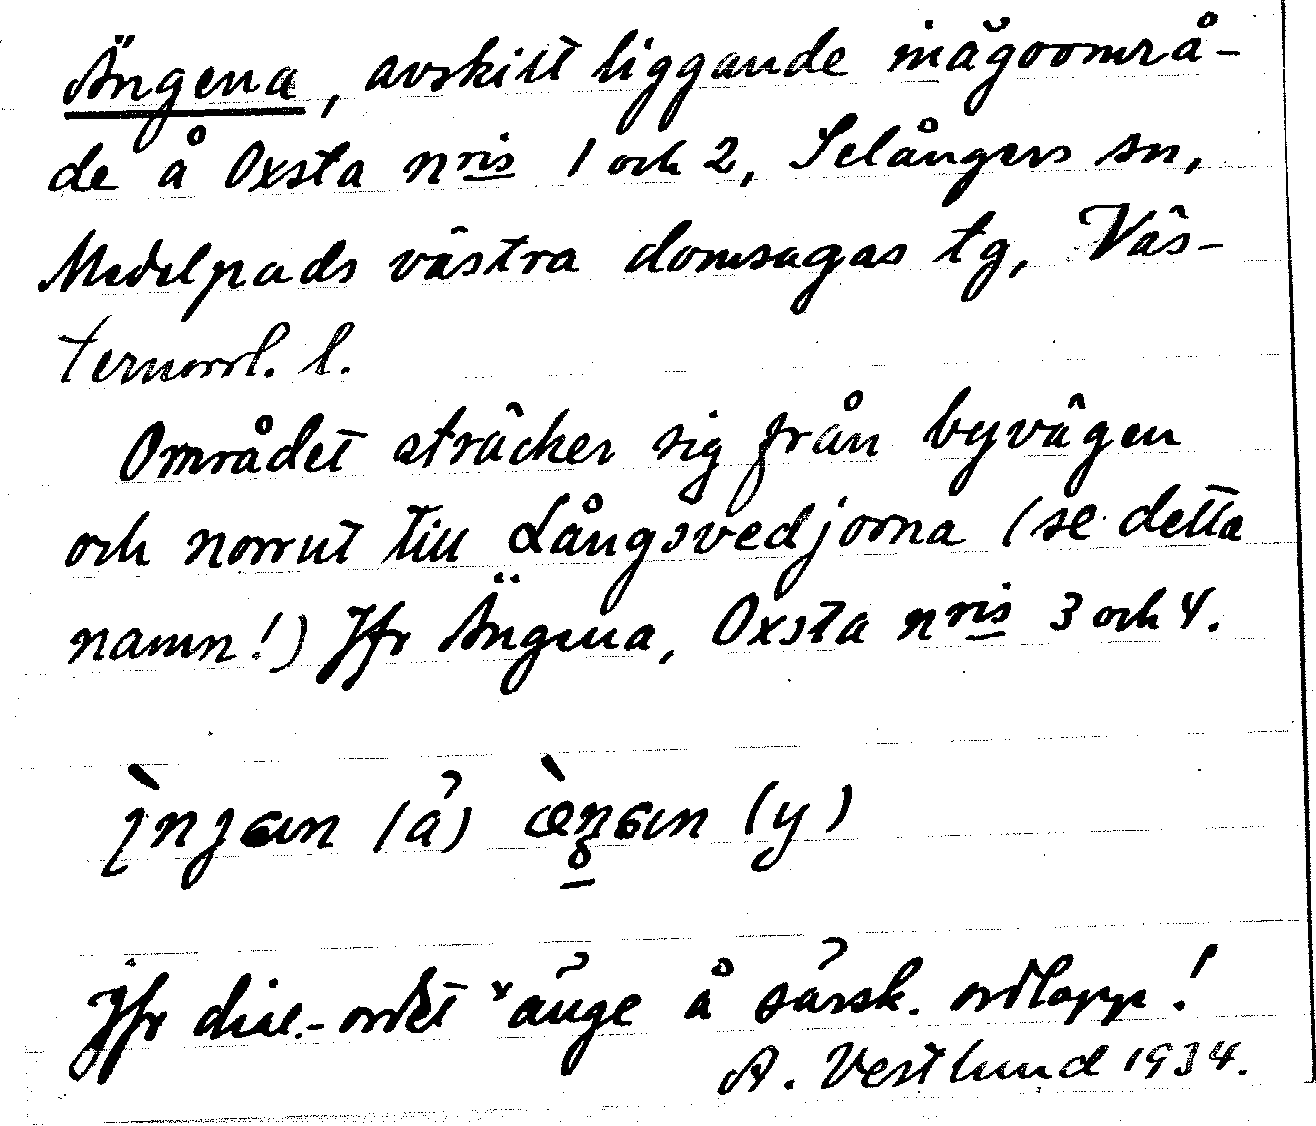 Ängena, avskilt liggande inägoområ-
de å Oxsta nris 1 och 2, Selångers sn,
Medelpads västra domsagas tg, Väs-
ternorrl. l.
Området sträcker sig från byvägen
och norrut till Långsvedjorna (se detta
namn!) Jfr Ängena, Oxsta nris 3 och 4.
(ä) (y)
Jfr dial.-ordet *änge å särsk. ordlapp!
A. Vestlund 1934.